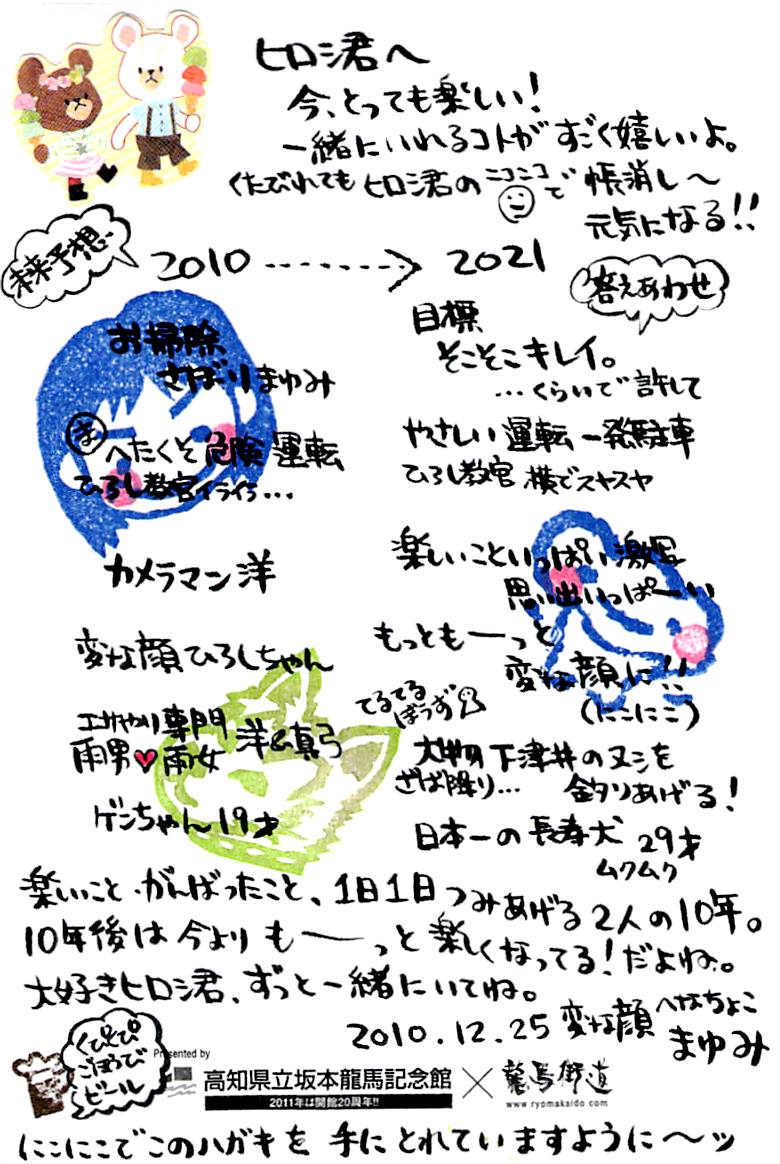 ヒロシ君へ
今、とっても楽しい！
一緒にいれるコトが すごく嬉しいよ。
くたびれても ヒロシ君の ニコニコで 帳消し〜
元気になる!!
未来予想
2010 -------> 2021
答えあわせ
お掃除
さぼりまゆみ
目標
そこそこキレイ。
…くらいで許して
ま へたくそ 危険運転
ひろし教官イライラ…
やさしい運転 一発駐車
ひろし教官 横でスヤスヤ
カメラマン洋
楽しいこといっぱい激写
思い出いっぱーい
変な顔ひろしちゃん
もっともーっと
変な顔に!!
(にこにこ)
エサやり専門
雨男♥雨女 洋&真弓
てるてるぼうず
大物の下津井のヌシを
ざぱ降り… 釣りあげる！
ゲンちゃん19才
日本一の長寿犬 29才
ムクムク
楽しいこと・がんばったこと、1日1日つみあげる2人の10年。
10年後は今よりもーっと楽しくなってる！だよね。
大好きヒロシ君、ずっと一緒にいてね。
2010.12.25 変な顔 へなちょこ まゆみ
くぴくぴ
ごほうび
ビール
Presented by
高知県立坂本龍馬記念館 × 龍馬街道
2011年は開館20周年!!
www.ryomakaido.com
にこにこでこのハガキを 手にとれていますように〜ッ